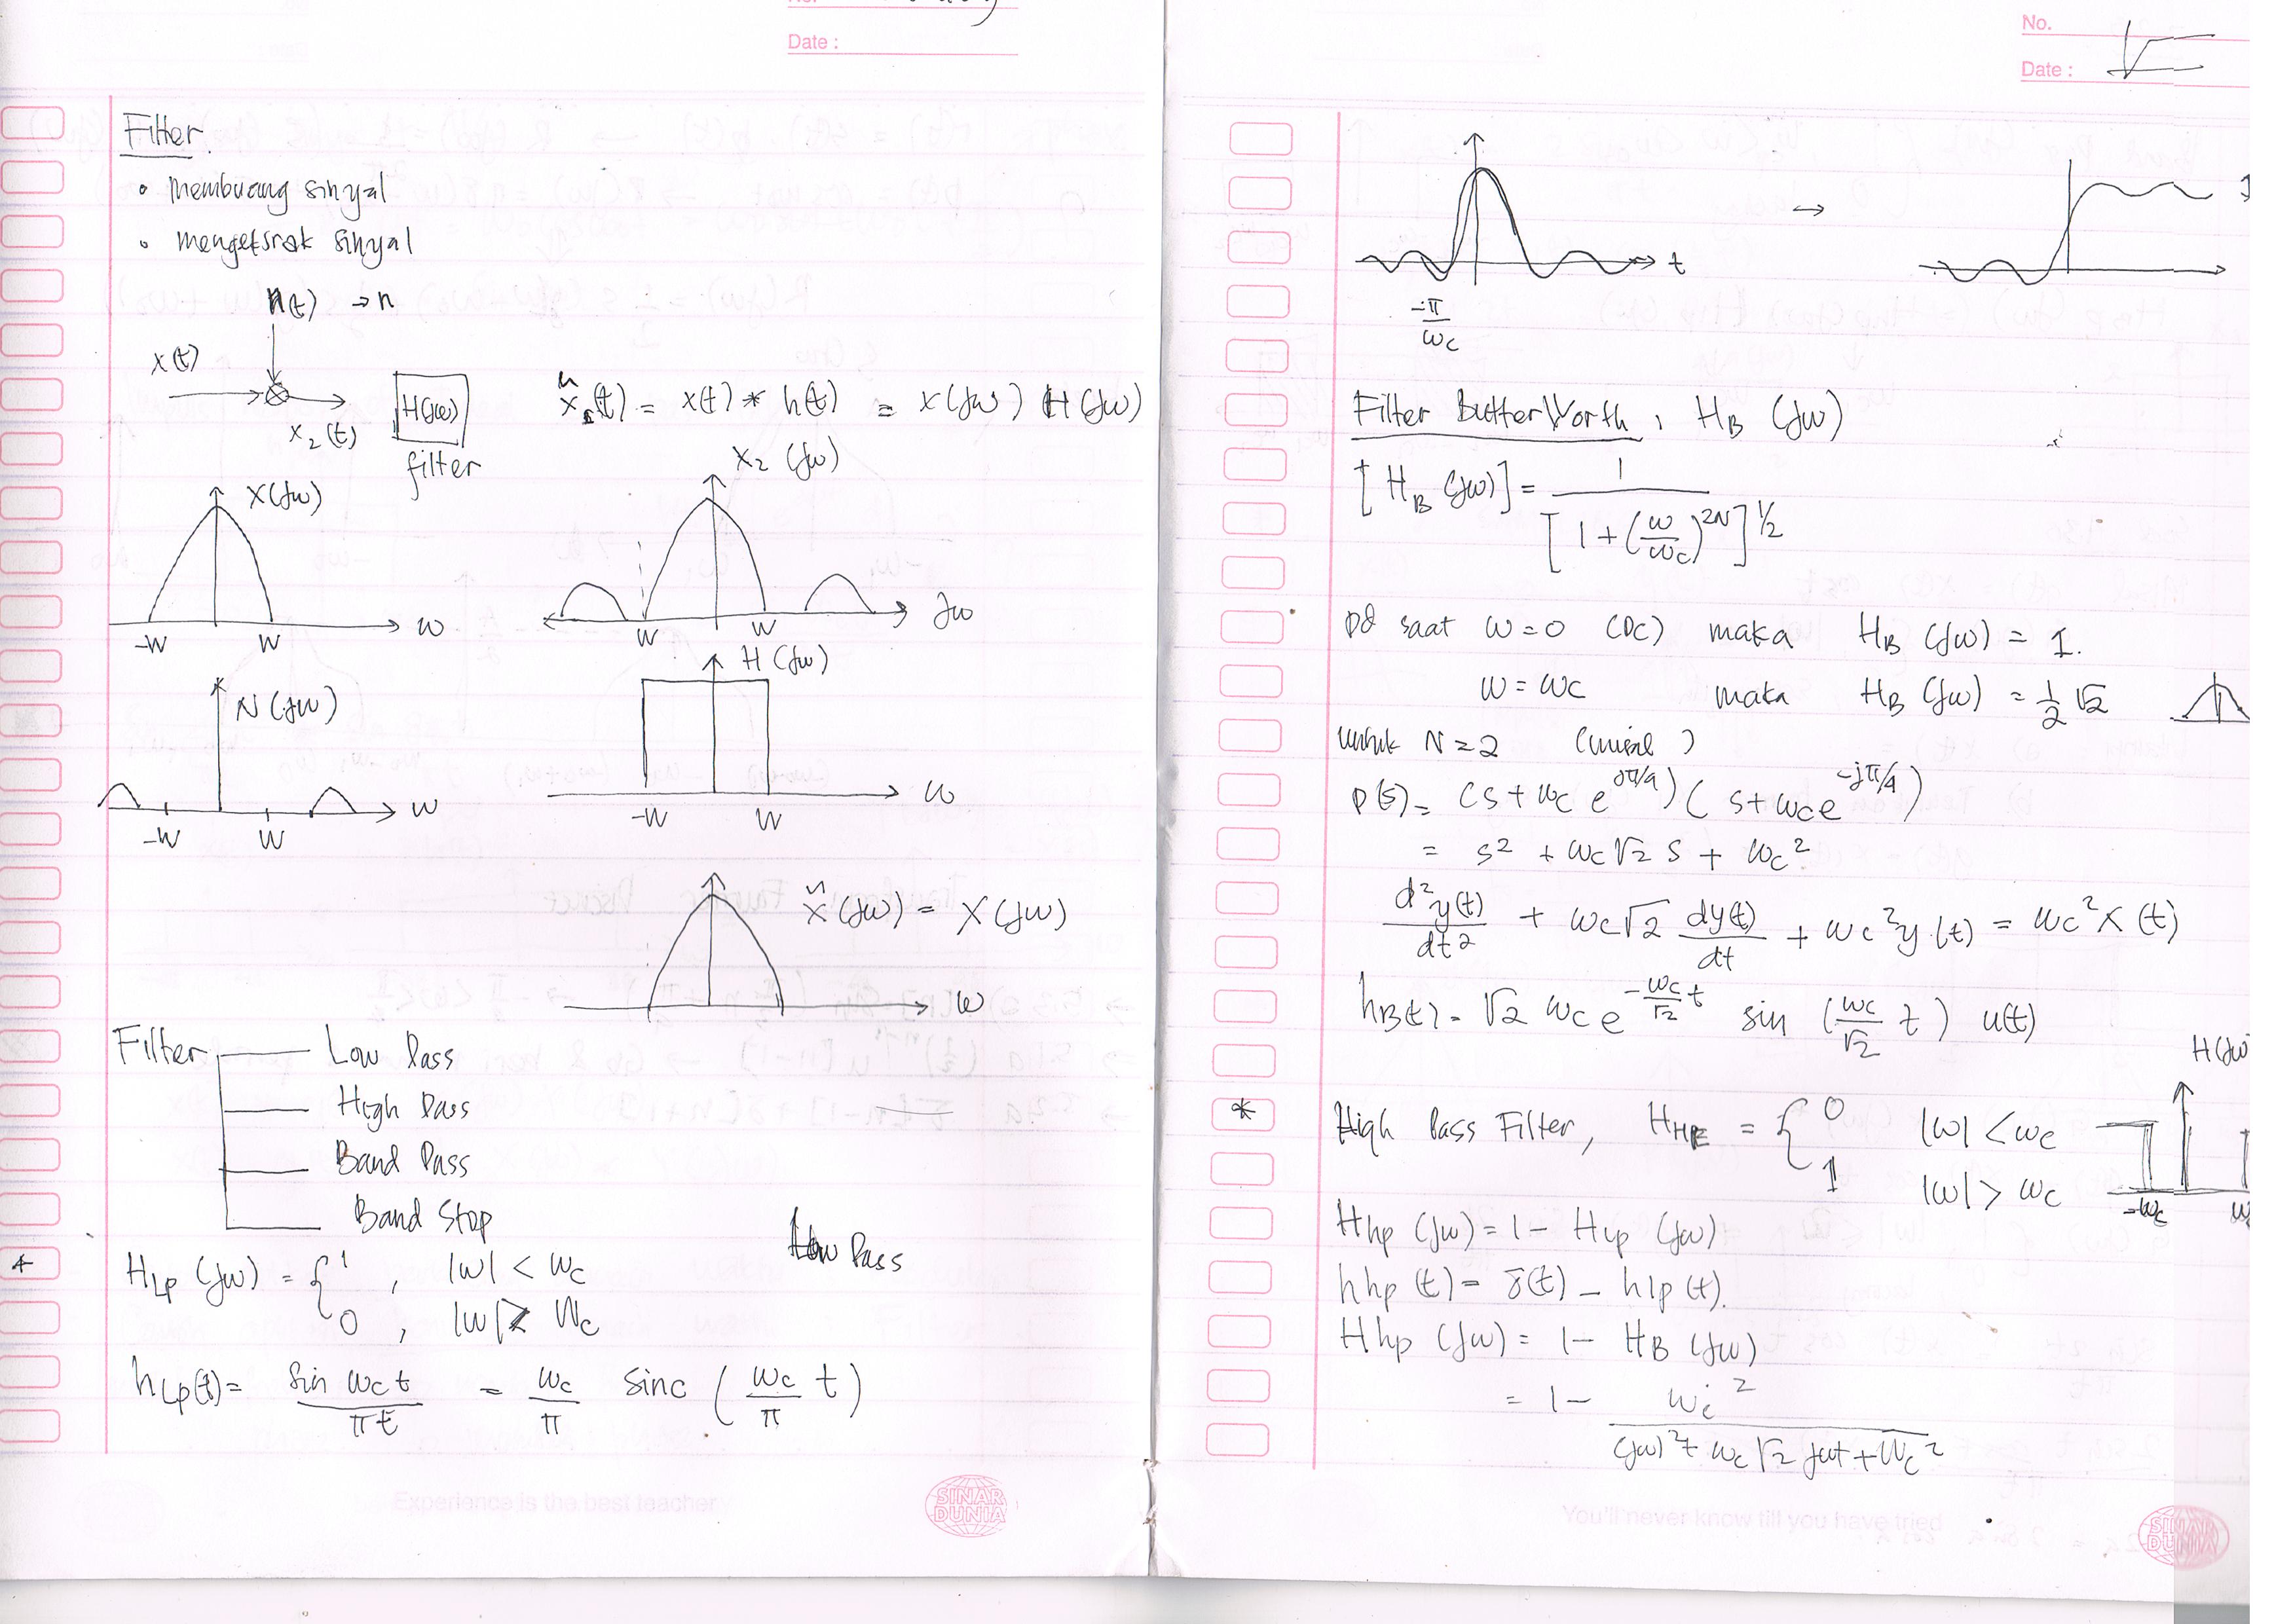 No.
Date :
Filter.
• Membuang sinyal
• mengeksrak sinyal
n(t) → n
x(t)
x₂(t)
H(jω)
filter
x̃(t) = x(t) * h(t) = X(jω) H(jω)
X(jω)
-W W ω
X₂(jω)
W W jω
N(jω)
-W W ω
H(jω)
-W W ω
x̃(jω) = X(jω)
ω
Filter
Low Pass
High Pass
Band Pass
Band Stop
Low Pass
H_LP (jω) = { 1 , |ω| < ωc
0 , |ω| > ωc
h_LP(t) = sin ωc t / πt = ωc/π sinc (ωc/π t)
Experience is the best teacher
SINAR DUNIA
No.
Date :
t
→
-π/ωc
Filter ButterWorth, H_B (jω)
[H_B (jω)] = 1 / [1 + (ω/ωc)^2N]^½
pd saat ω = 0 (DC) maka H_B (jω) = 1.
ω = ωc maka H_B (jω) = ½ √2
untuk N = 2 (misal)
P(s) = (s + ωc e^jπ/4) (s + ωc e^-jπ/4)
= s² + ωc √2 s + ωc²
d²y(t)/dt² + ωc √2 dy(t)/dt + ωc² y(t) = ωc² x(t)
h_B(t) = √2 ωc e^(-ωc/√2 t) sin (ωc/√2 t) u(t)
H(jω
* High Pass Filter, H_HP = { 0 |ω| < ωc
1 |ω| > ωc
-ωc
Hhp (jω) = 1 - Hlp (jω)
hhp (t) = δ(t) - hlp (t).
Hhp (jω) = 1 - H_B (jω)
= 1 - ωc² / (jω)² + ωc √2 jωt + ωc²
You'll never know till you have tried
SINAR DUNIA